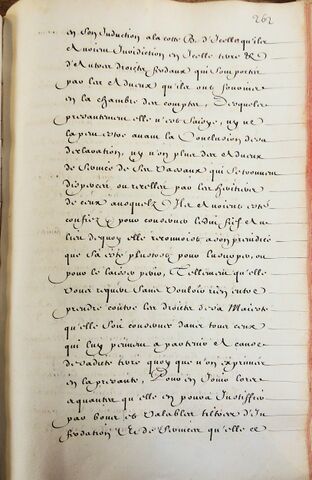 262
en son Induction a la cotte B. d'Icelle qu'il
avoient Jurisdiction en Icelle terre &
d'autres droictz feodaux qui
par les adveux qu'ils ont fournis
en la chambre des comptes, desquels
presentement elle n'est saisye, ny ne
la peu estre avant la Conclusion de sa
declaration, ny non plus des adveux
de de ses vassaux qui se trouvent
disperez ou recellez par les heritiers
de ceux auxquels Ils avoient esté
confiez pour conserver ledit fief au
lieu de quoy elle recognoist a son prejudice
que sa esté plustost pour
pour le laisser perir, Tellement qu'elle
vous requiert sans vouloir rien
prendre contre les droictz de sa Majesté
qu'elle soit conservée dans tous ceux
qui luy peuvent apartenir a cause
de ladite terre quoy que non exprimez
en la presente, Pour en Jouir lors
& quantes qu'elle en poura Justiffier
par bons et valables tiltres d'In
feodation Et de qu'elle ce